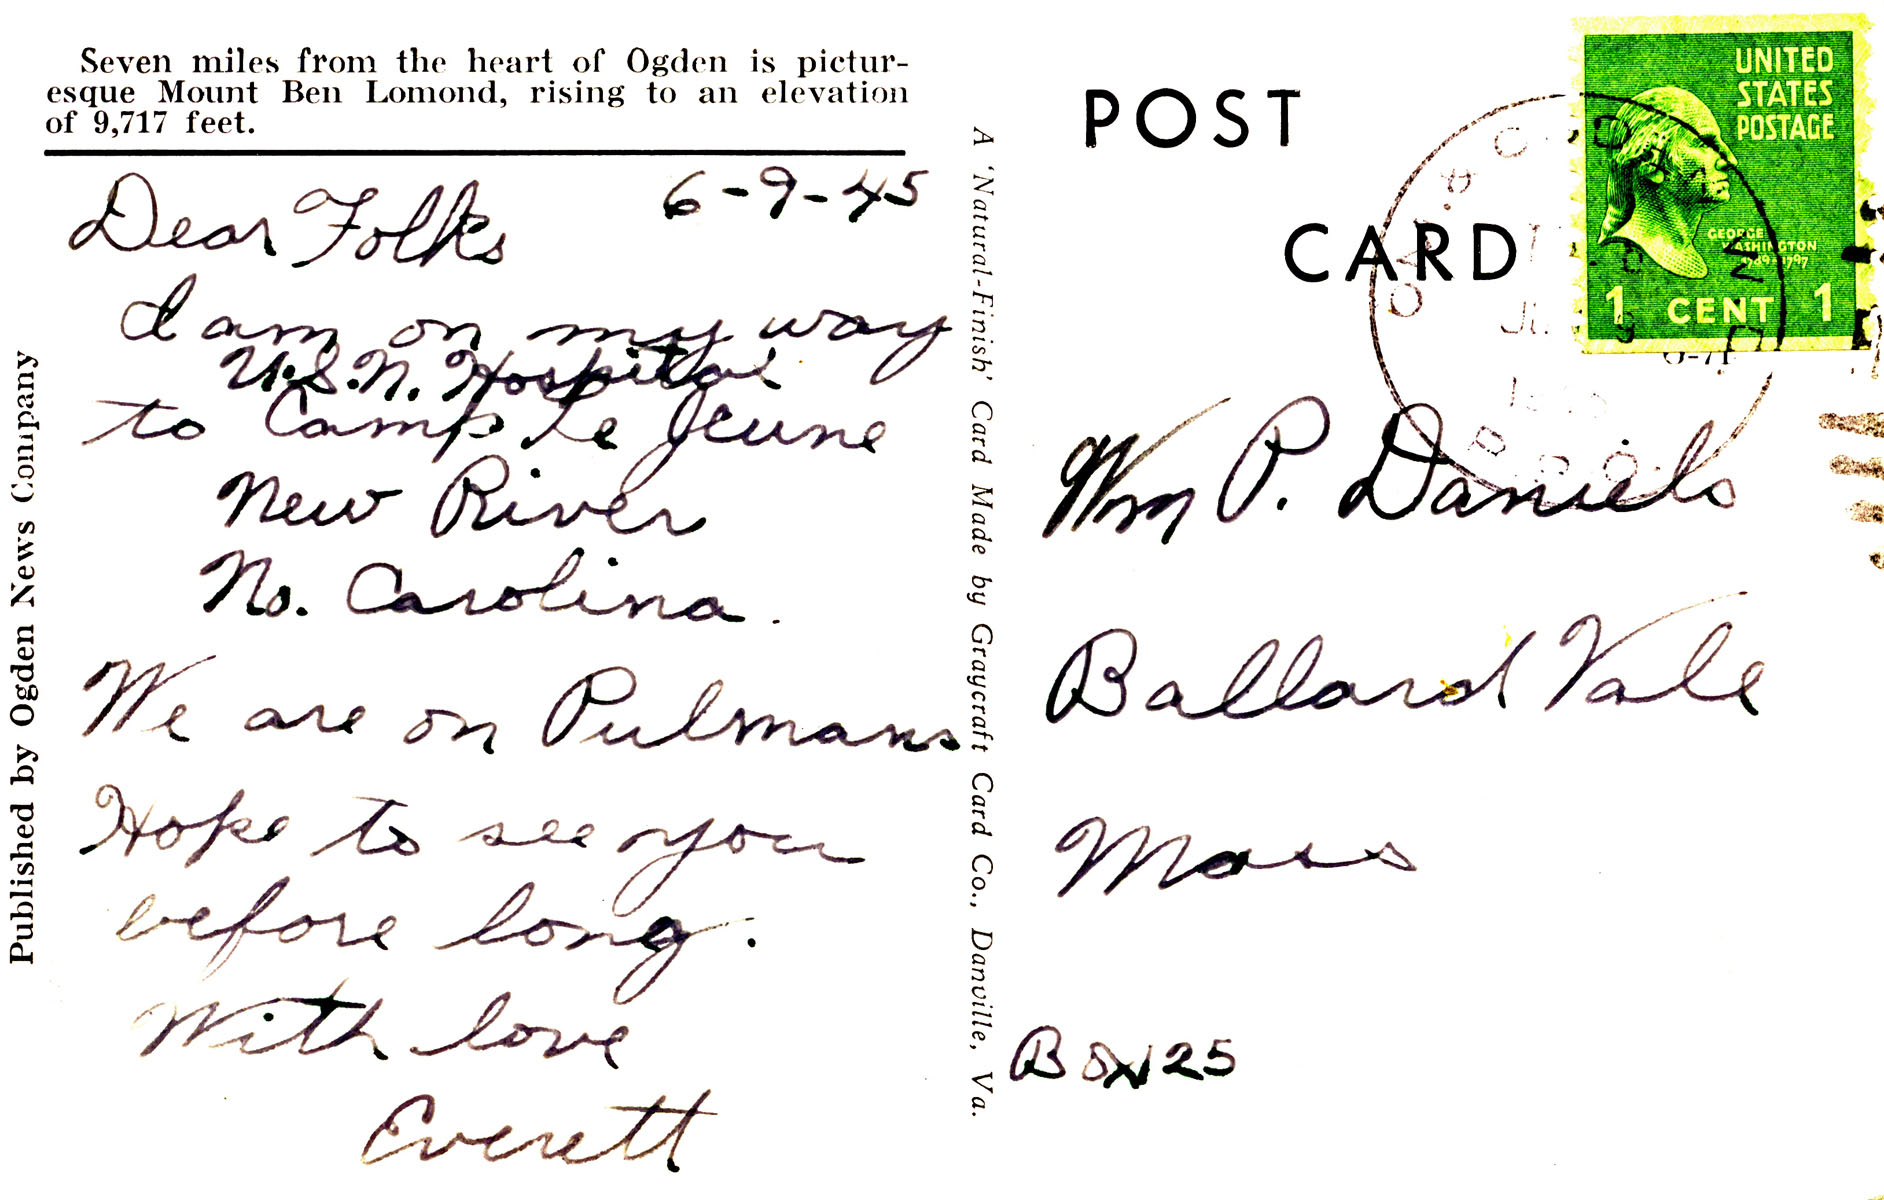 Seven miles from the heart of Ogden is pictur-
esque Mount Ben Lomond, rising to an elevation
of 9,717 feet.
6-9-45
Dear Folks
I am on my way
U.S.N. Hospital
to Camp Le Jeune
New River
No. Carolina.
We are on Pulmans
Hope to see you
before long.
With love
Everett
Published by Ogden News Company
A 'Natural-Finish' Card Made by Graycraft Card Co., Danville, Va.
POST
CARD
UNITED
STATES
POSTAGE
GEORGE
WASHINGTON
1789-1797
1 CENT 1
Wm P. Daniels
Ballard Vale
Mass
Box 25